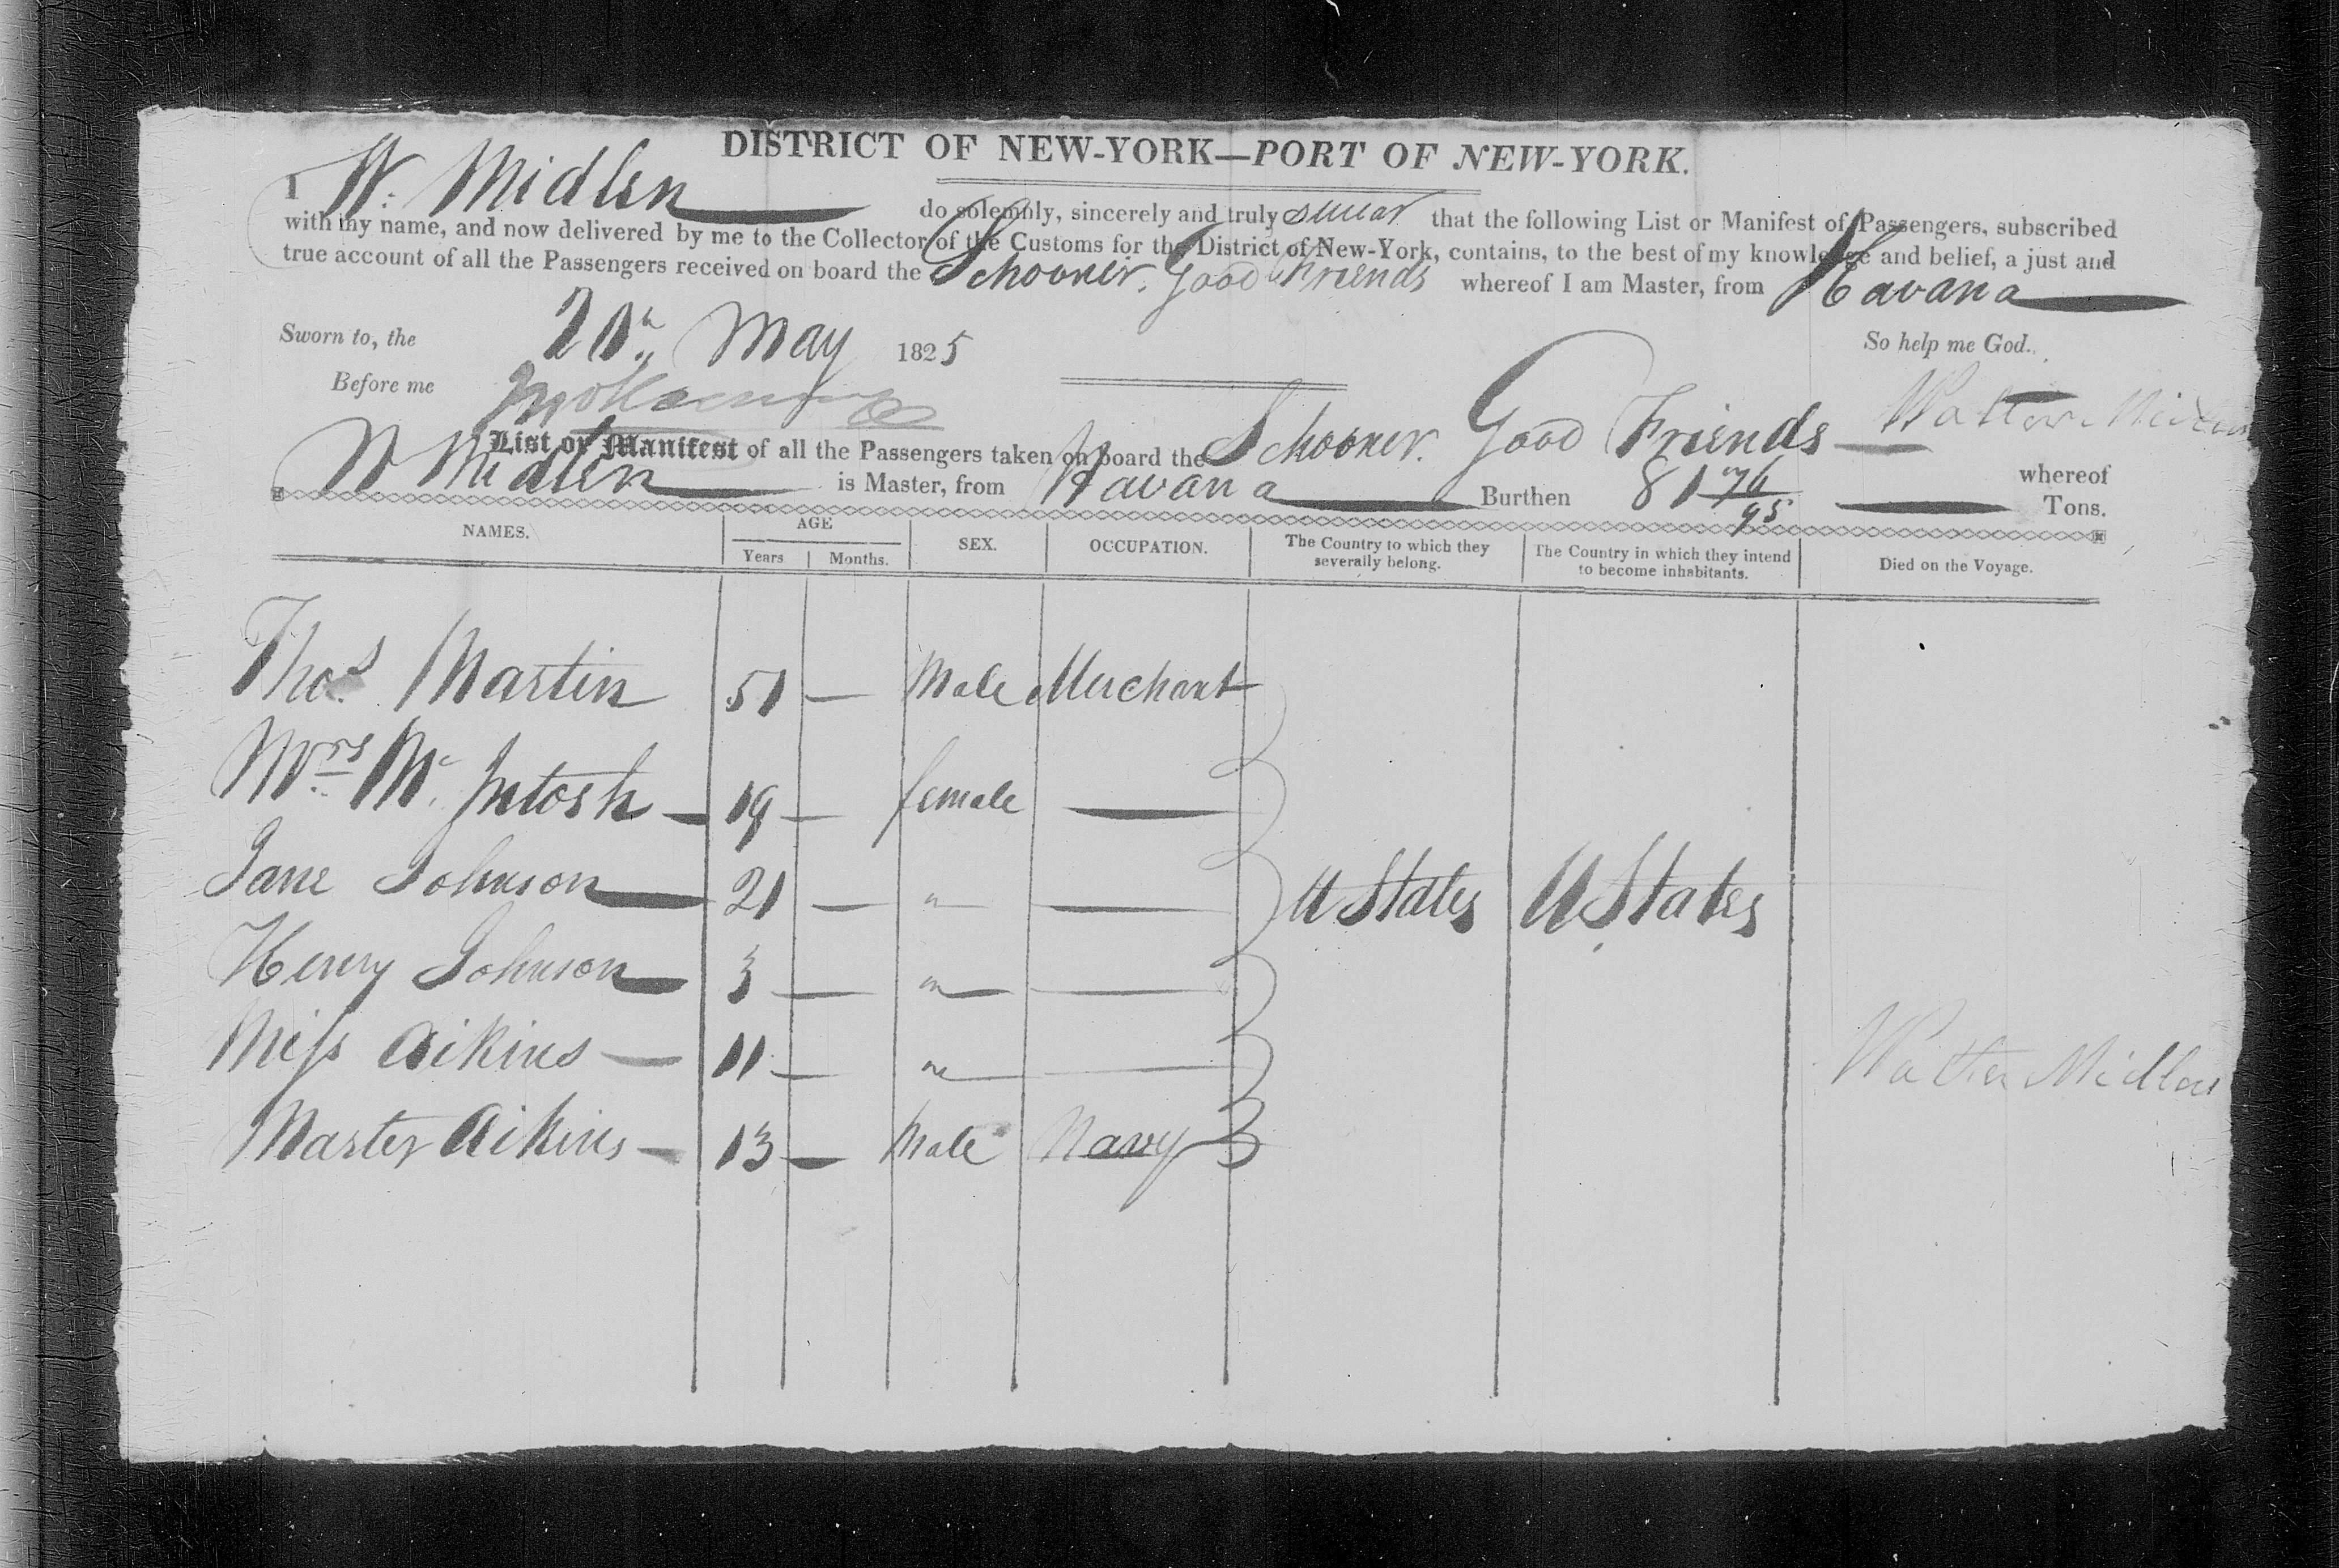 DISTRICT OF NEW-YORK—PORT OF NEW-YORK.
I W. Midlen do solemnly, sincerely and truly swear that the following List or Manifest of Passengers, subscribed
with my name, and now delivered by me to the Collector of the Customs for the District of New-York, contains, to the best of my knowledge and belief, a just and
true account of all the Passengers received on board the Schooner. Good Friends whereof I am Master, from Havana
Sworn to, the May 1825 So help me God.
Before me
Walter Midlen
List or Manifest of all the Passengers taken on board the Schooner. Good Friends whereof
W Midlen is Master, from Havana Burthen 81 76/95 Tons.
NAMES. AGE SEX. OCCUPATION. The Country to which they severally belong. The Country in which they intend to become inhabitants. Died on the Voyage.
Years Months.
Thos Martin 51 — Male Merchant
Mrs Mc Intosh — 19 — female —
Jane Johnson — 21 — " — U States U States
Henry Johnson — 3 — " —
Miss Aikins — 11 — " —
Walter Midlen
Master Aikins — 13 — Male Navy